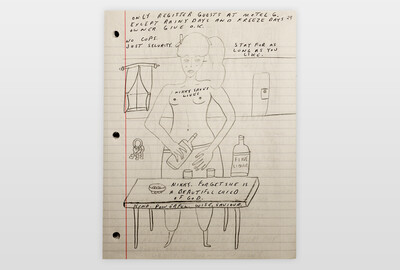 ONLY REGISTER GUESTS AT MOTEL 6,
EXCEPT RAINY DAYS AND FREEZE DAYS IF
OWNER GIVE O.K.
NO COPS.
JUST SECURITY.
STAY FOR AS
LONG AS YOU
LIKE.
GIVES
FINE
NINNY. FORGET SHE IS
A BEAUTIFUL CHILD
OF GOD.
KIND, POWERFUL, WISE, SAVIOUR